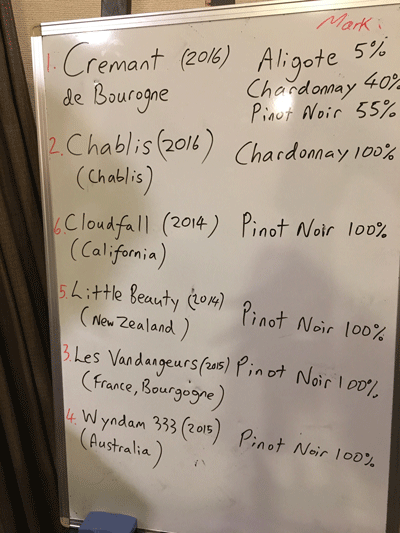 Mark:
1. Cremant (2016) Aligote 5%
de Bourogne Chardonnay 40%
Pinot Noir 55%
2. Chablis (2016) Chardonnay 100%
(Chablis)
6. Cloudfall (2014) Pinot Noir 100%
(California)
5. Little Beauty (2014) Pinot Noir 100%
(New Zealand)
3. Les Vandangeurs (2015) Pinot Noir 100%
(France, Bourgogne)
4. Wyndam 333 (2015) Pinot Noir 100%
(Australia)